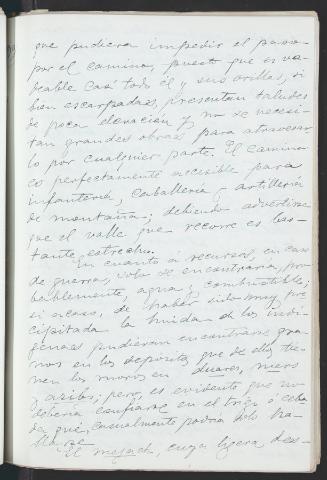 que pudiera impedir el paso
por el camino, puesto que es va-
deable casi todo él y sus orillas, si
bien escarpadas, presentan taludes
de poca elevación y no se necesi-
tan grandes obras para atravesar-
lo por cualquier parte. El camino
es perfectamente accesible para
infantería, caballería y artillería
de montaña; debiendo advertirse
que el valle que recorre es bas-
tante estrecho.
En cuanto á recursos, en caso
de guerra, solo se encontraría, pro-
bablemente, agua y combustible;
si acaso, de haber sido muy pre-
cipitada la huida de los indí-
genas pudieran encontrarse gra-
nos en los depósitos que de ellos tie-
nen los moros en duares, mers
y aribs; pero, es evidente que no
debería confiarse en el trigo ó ceba-
da que, casualmente podría
llarse
El mejach, cuya ligera des-